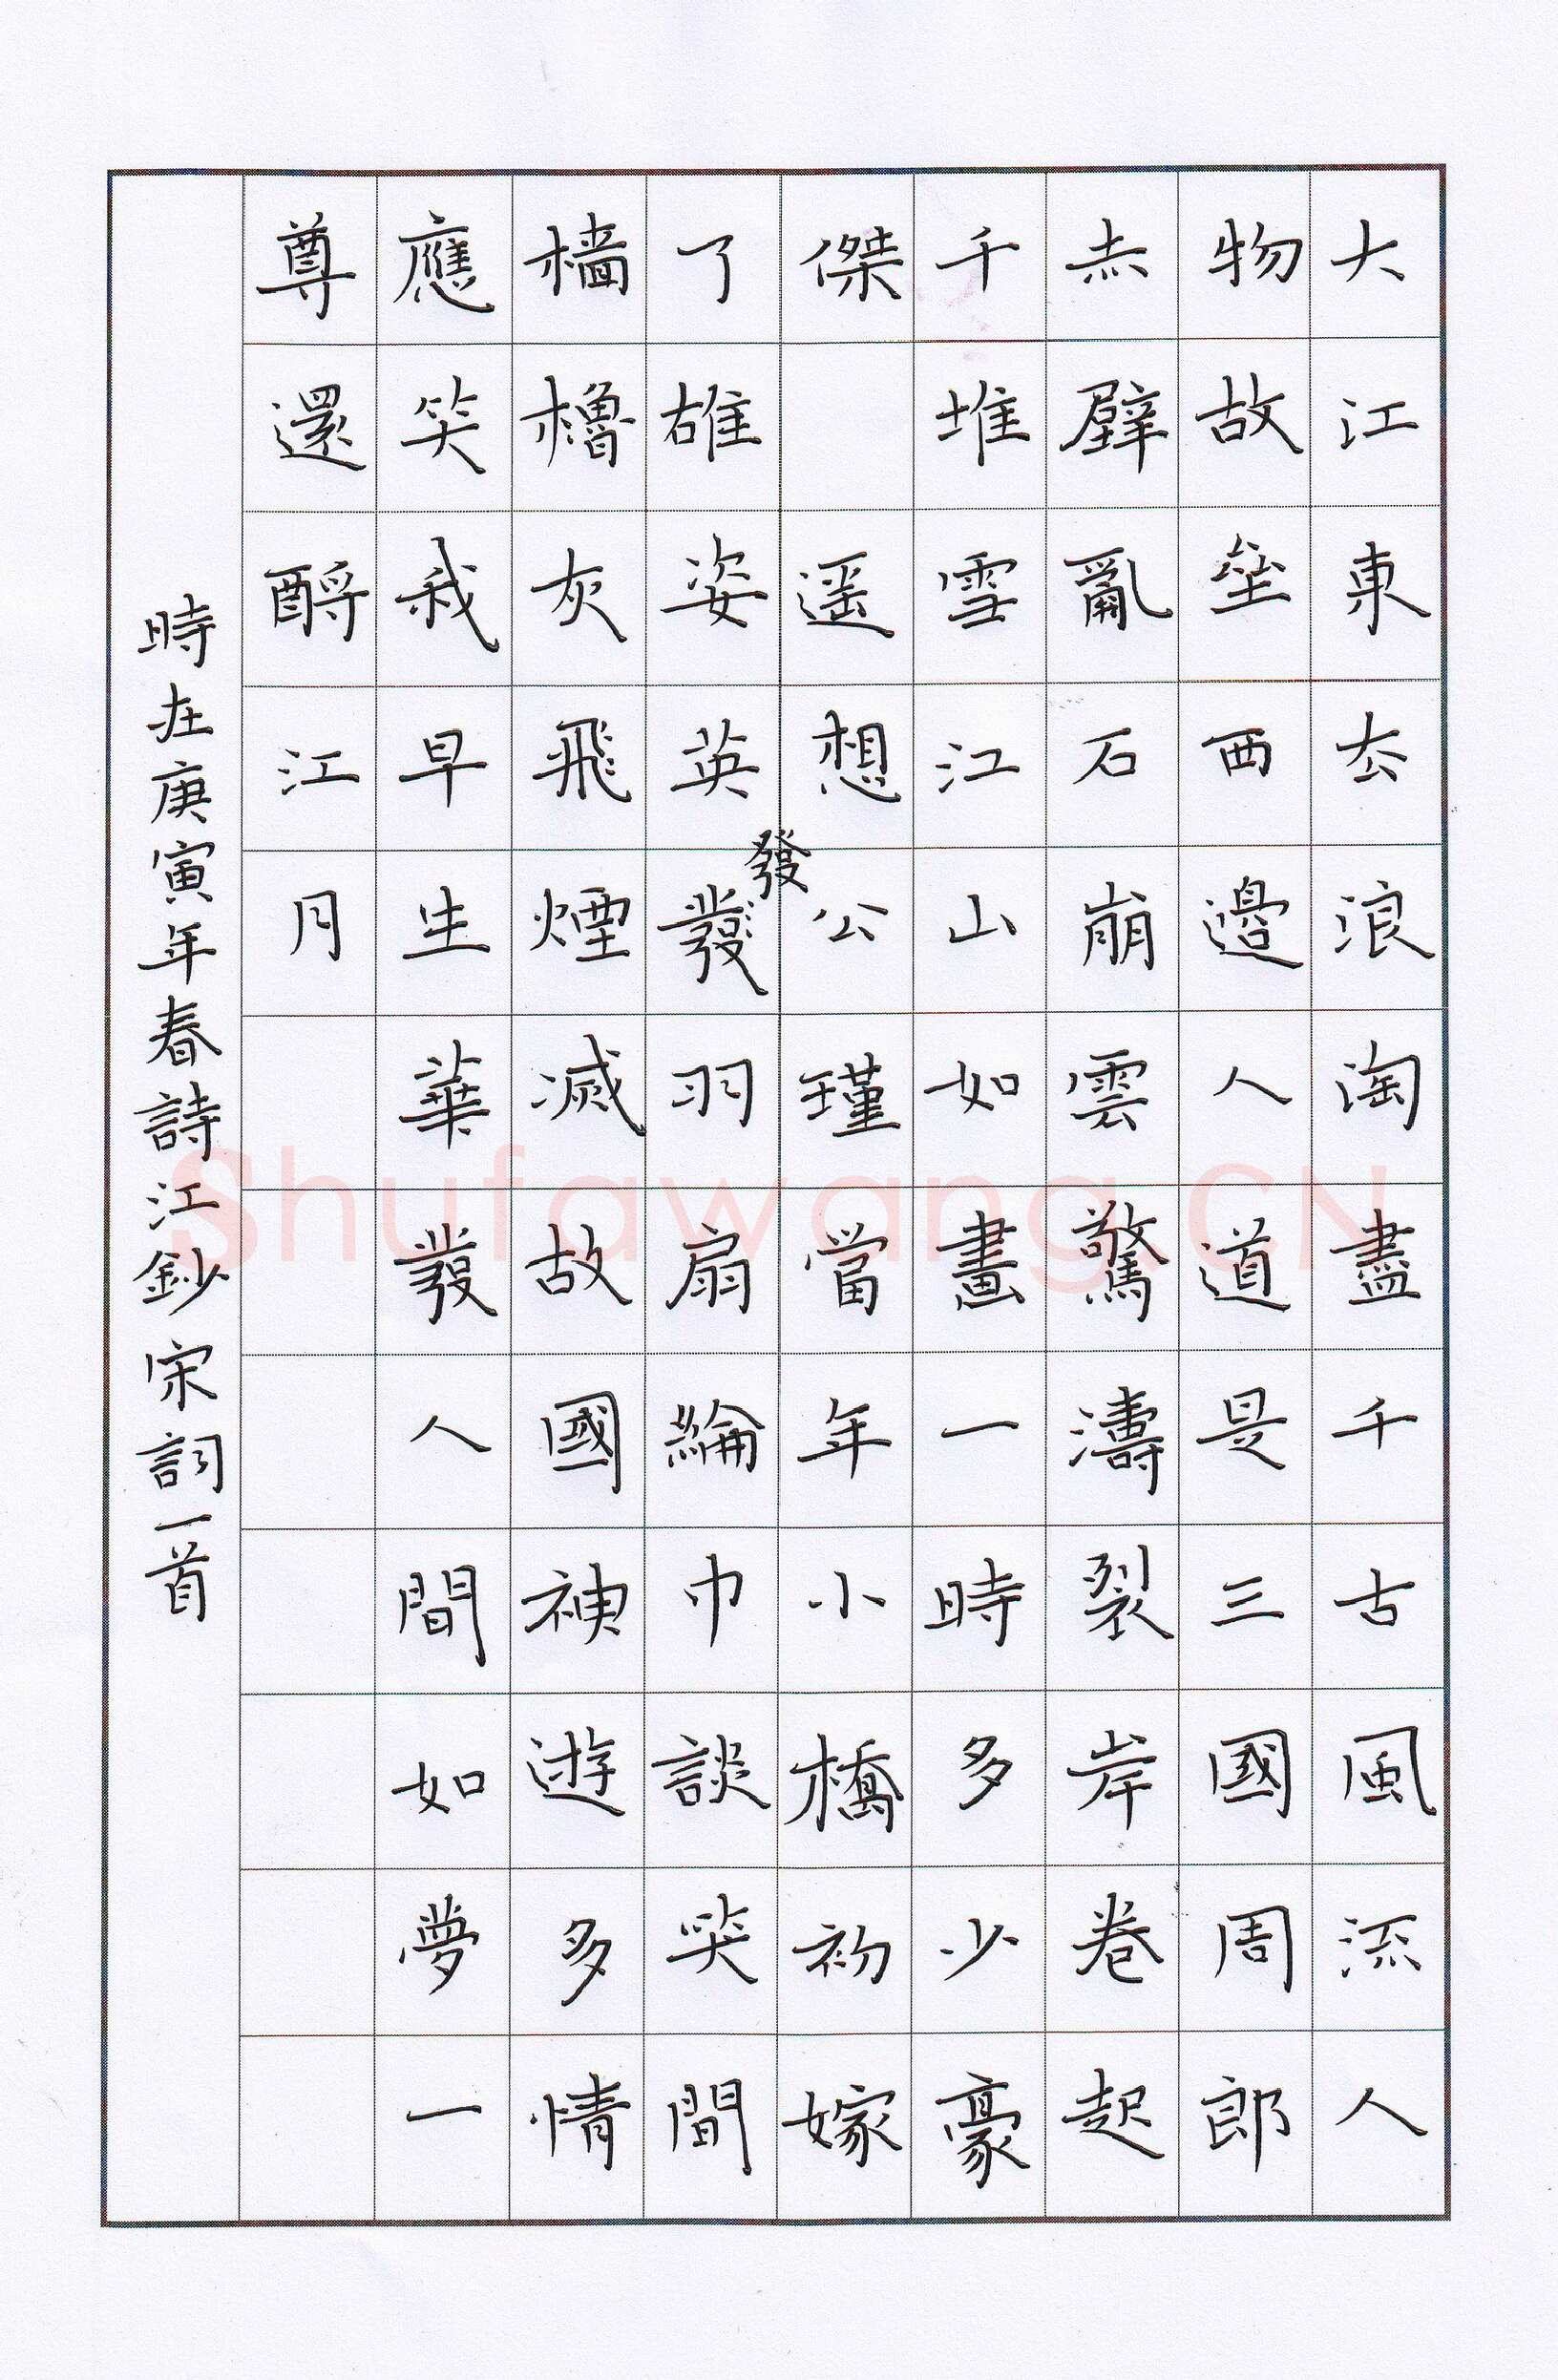 大江東去浪淘盡千古風流人
物故壘西邊人道是三國周郎
赤壁亂石崩雲驚濤裂岸卷起
千堆雪江山如畫一時多少豪
傑 遥想公瑾當年小橋初嫁
了雄姿英發羽扇綸巾談笑間
發
檣櫓灰飛煙滅故國神遊多情
應笑我早生華發人間如夢一
尊還酹江月
時在庚寅年春詩江鈔宋詞一首
Shufawang.CN